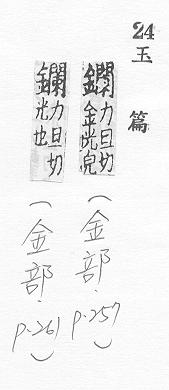 24 玉篇
鑭 力旦切 金光皃 (金部·p.257)
鑭 力旦切 光也 (金部·p.261)